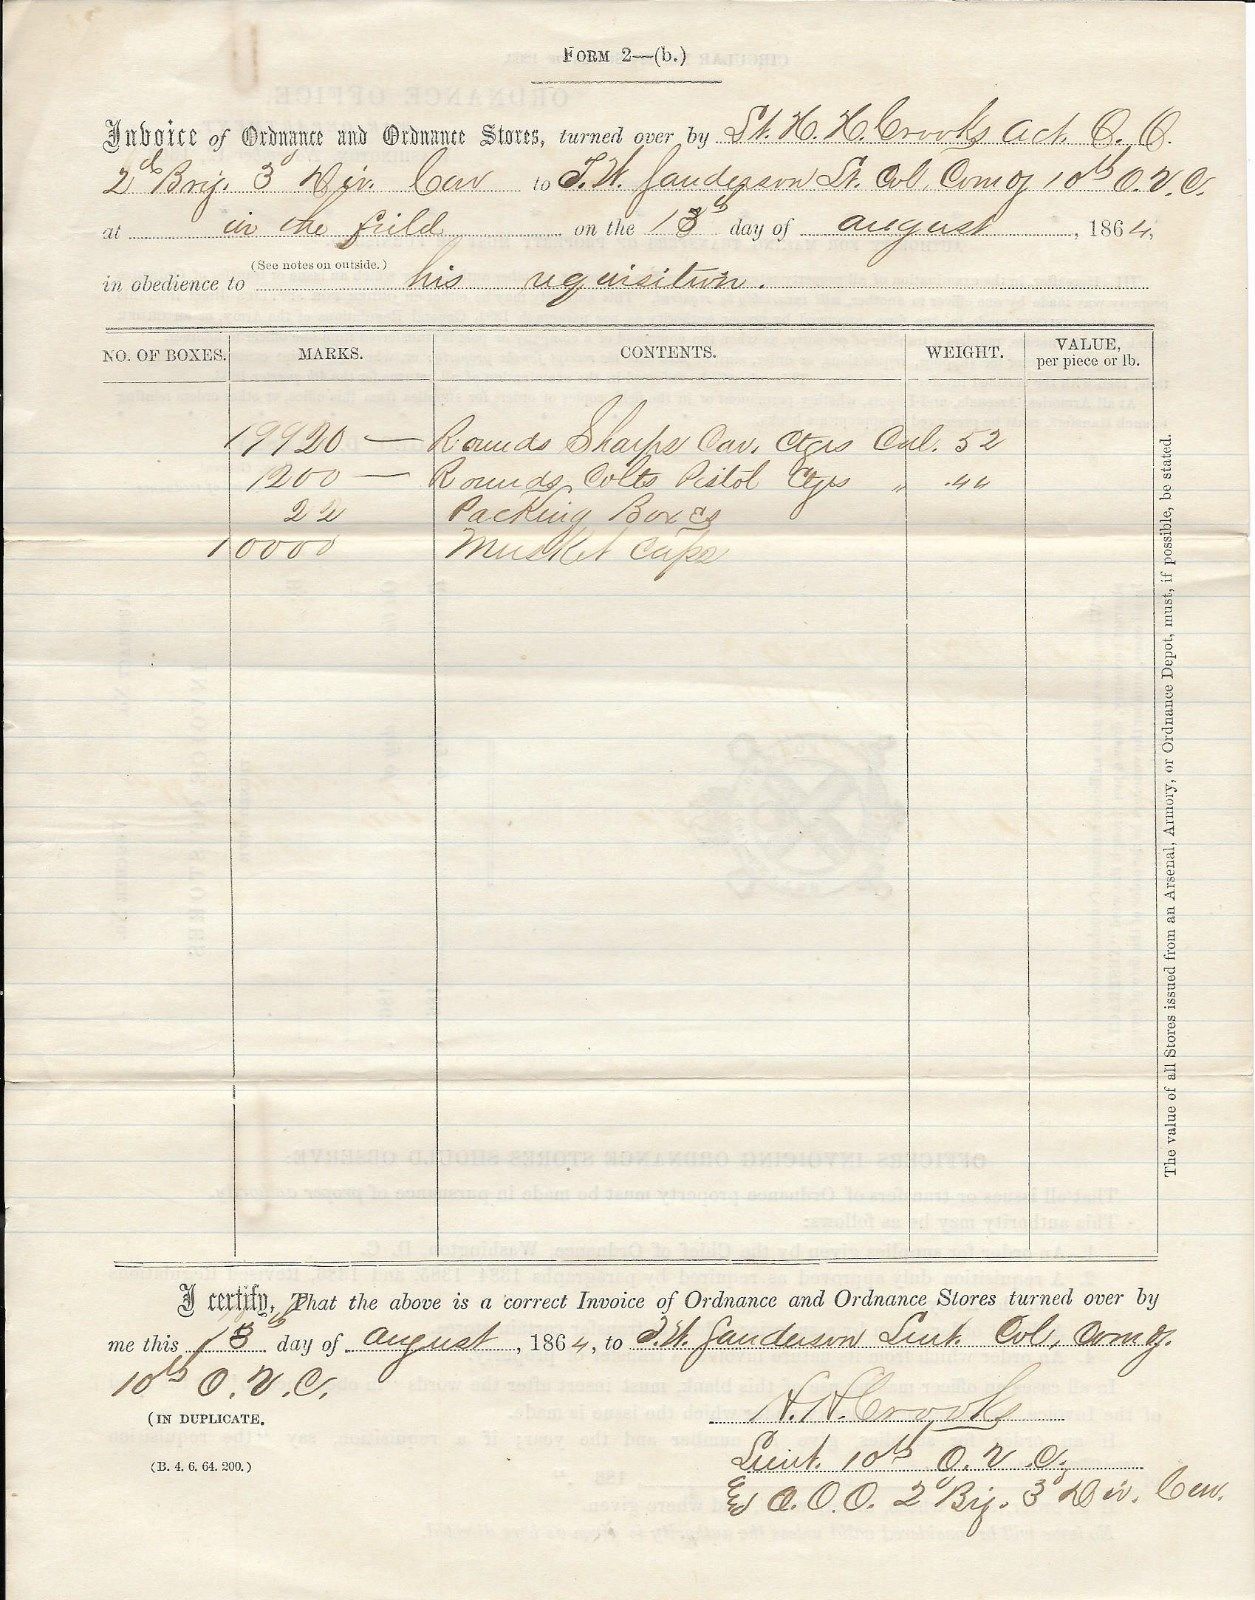 FORM 2—(b.)
Invoice of Ordnance and Ordnance Stores, turned over by Lt. H. H. Crooks Act. O. O.
2d Brig. 3d Div. Cav to T. W. Sanderson Lt. Col. Comdg 10th O. V. C.
at in the field on the 13th day of august, 1864,
(See notes on outside.)
in obedience to his requisition.
NO. OF BOXES. MARKS. CONTENTS. WEIGHT. VALUE, per piece or lb.
19920 — Rounds Sharps Car. Ctgs Cal. 52
1200 — Rounds Colts Pistol Ctgs " .44
22 Packing Boxes
10000 Musket Caps
The value of all Stores issued from an Arsenal, Armory, or Ordnance Depot, must, if possible, be stated.
I certify, That the above is a correct Invoice of Ordnance and Ordnance Stores turned over by
me this 13th day of august, 1864, to T. W. Sanderson Lieut. Col. Comdg.
10th O. V. C.
(IN DUPLICATE.
H. H. Crooks
(B. 4. 6. 64. 200.)
Lieut. 10th O. V. C.
& A. O. O. 2d Brig. 3d Div. Cav.